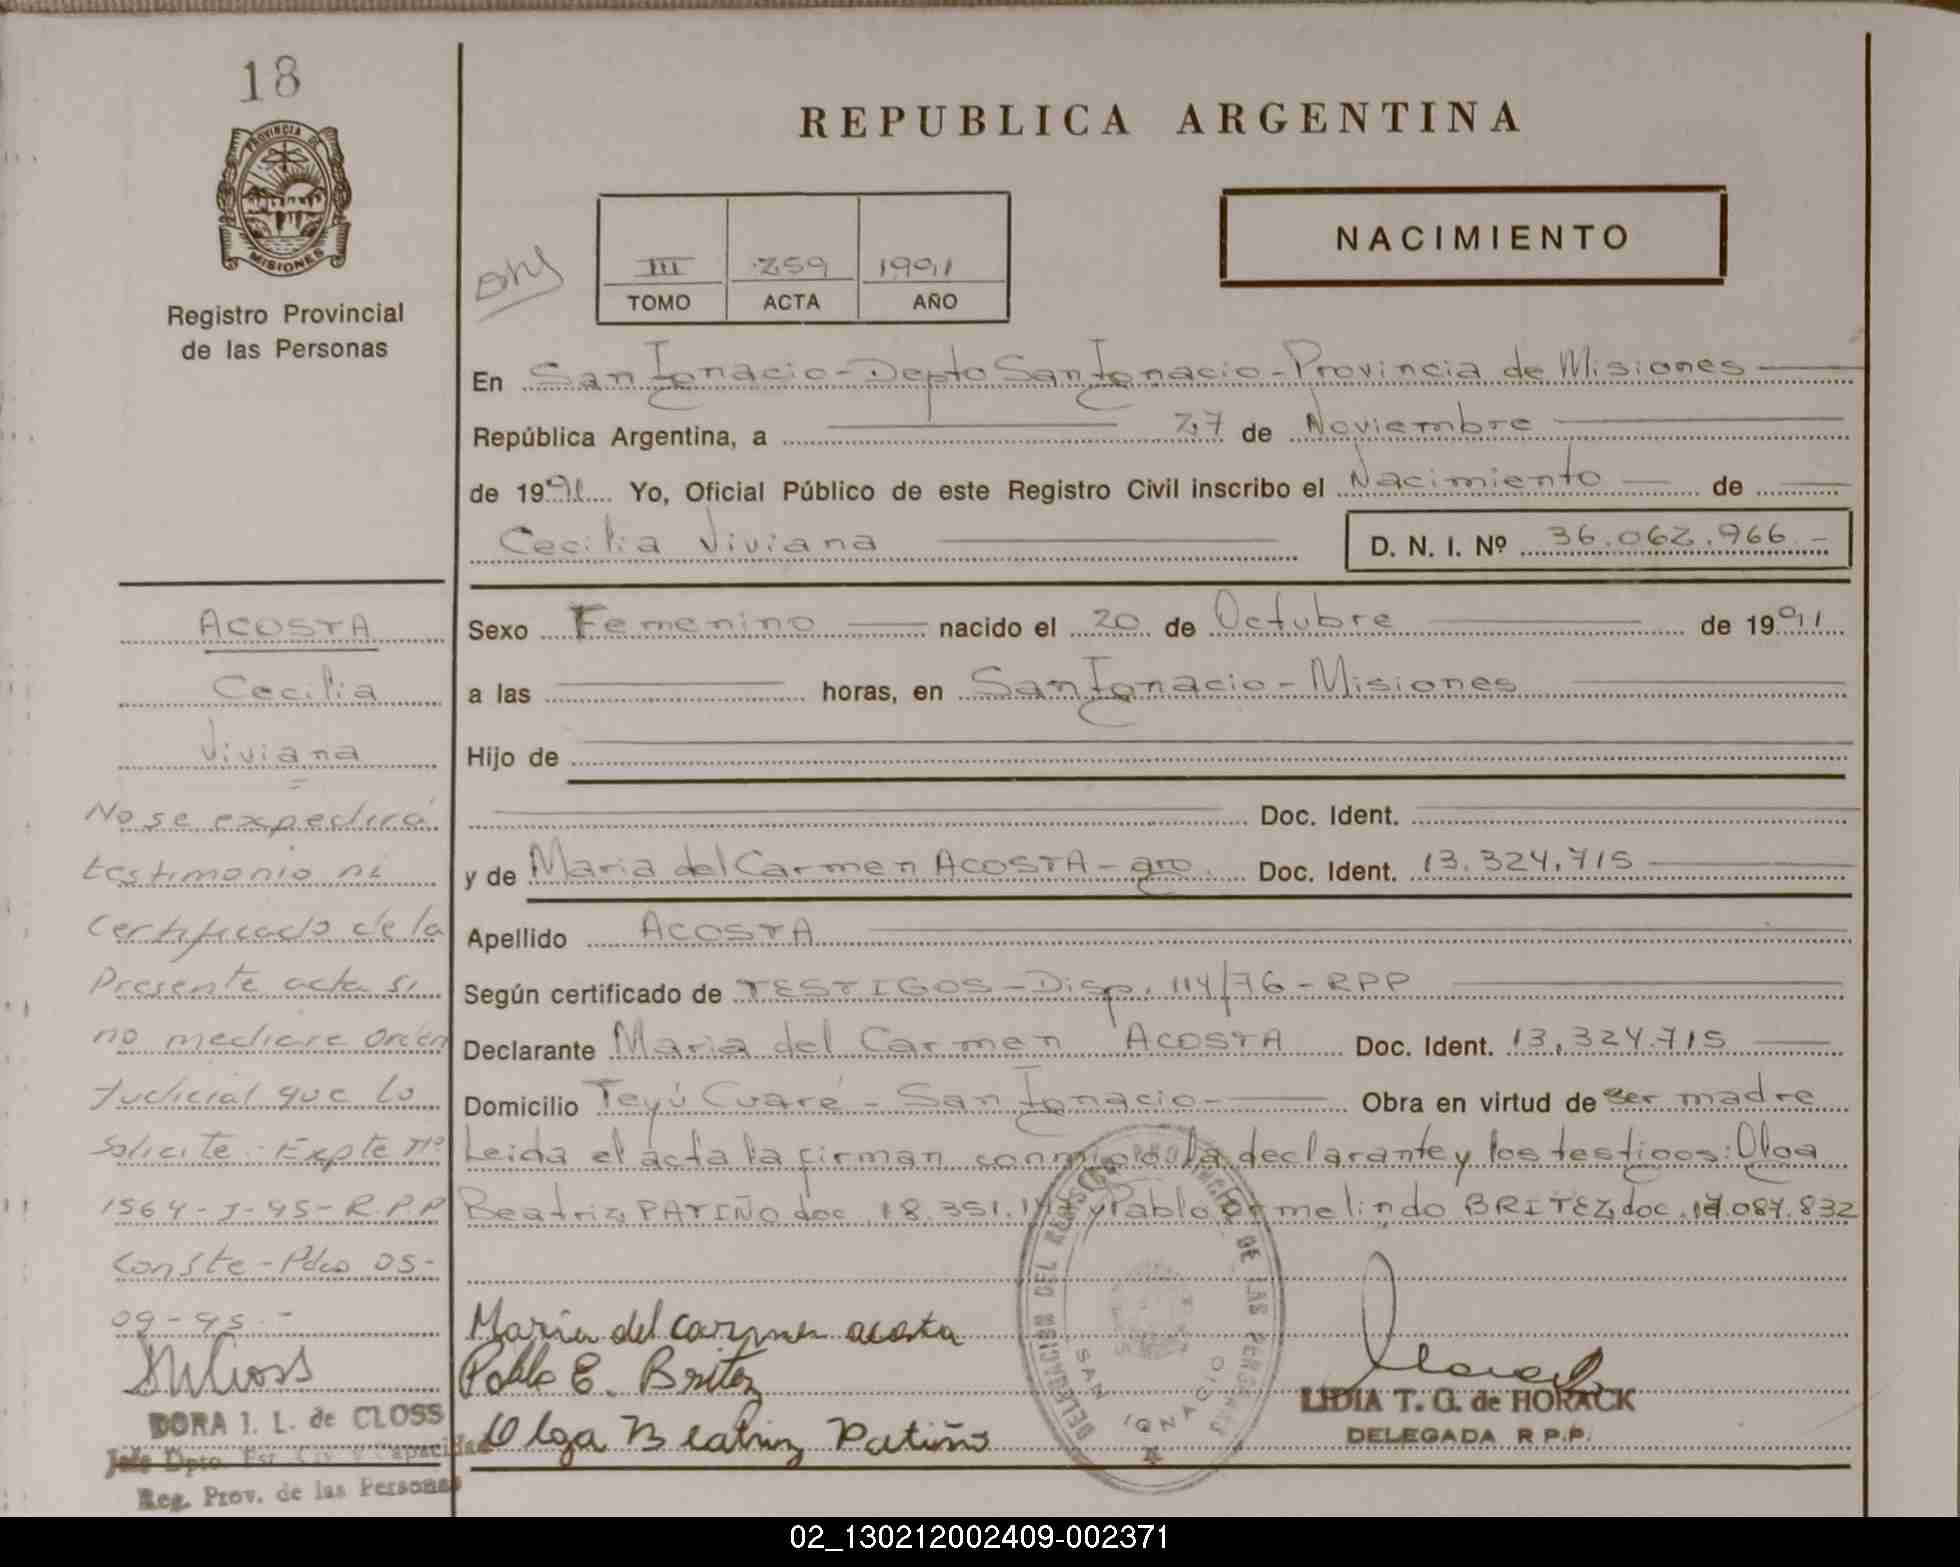 18
PROVINCIA DE
MISIONES
Registro Provincial
de las Personas
REPUBLICA ARGENTINA
NACIMIENTO
III 259 1991
TOMO ACTA AÑO
En San Ignacio - Depto San Ignacio - Provincia de Misiones
República Argentina, a 27 de Noviembre
de 1991 Yo, Oficial Público de este Registro Civil inscribo el Nacimiento de
Cecilia Viviana D. N. I. Nº 36.062.966.-
Sexo Femenino nacido el 20 de Octubre de 1991
a las horas, en San Ignacio - Misiones
Hijo de
Doc. Ident.
y de Maria del Carmen ACOSTA - Doc. Ident. 13.324.715
Apellido ACOSTA
Según certificado de TESTIGOS - Disp. 114/76 - RPP
Declarante Maria del Carmen ACOSTA Doc. Ident. 13.324.715
Domicilio Teyú Cuaré - San Ignacio - Obra en virtud de ser madre
Leida el acta la firman conmigo la declarante y los testigos: Olga
Beatriz PATIÑO doc. 18.351. y Pablo Ermelindo BRITEZ, doc. 17.087.832
Maria del carmen acosta
Pablo E. Britez
Olga Beatriz Patiño
DELEGACION DEL REGISTRO PROVINCIAL DE LAS PERSONAS
SAN IGNACIO
LIDIA T. G. de HORACK
DELEGADA R.P.P.
ACOSTA
Cecilia
Viviana
No se expedirá
testimonio ni
Certificado de la
Presente acta si
no mediare orden
Judicial que lo
Solicite. Expte nº
1564-J-95-R.P.P
Conste - Pdas 05-
09-95.-
DORA I. L. de CLOSS
Jefe Dpto. Est. Civ. y Capacidad
Reg. Prov. de las Personas
02_130212002409-002371